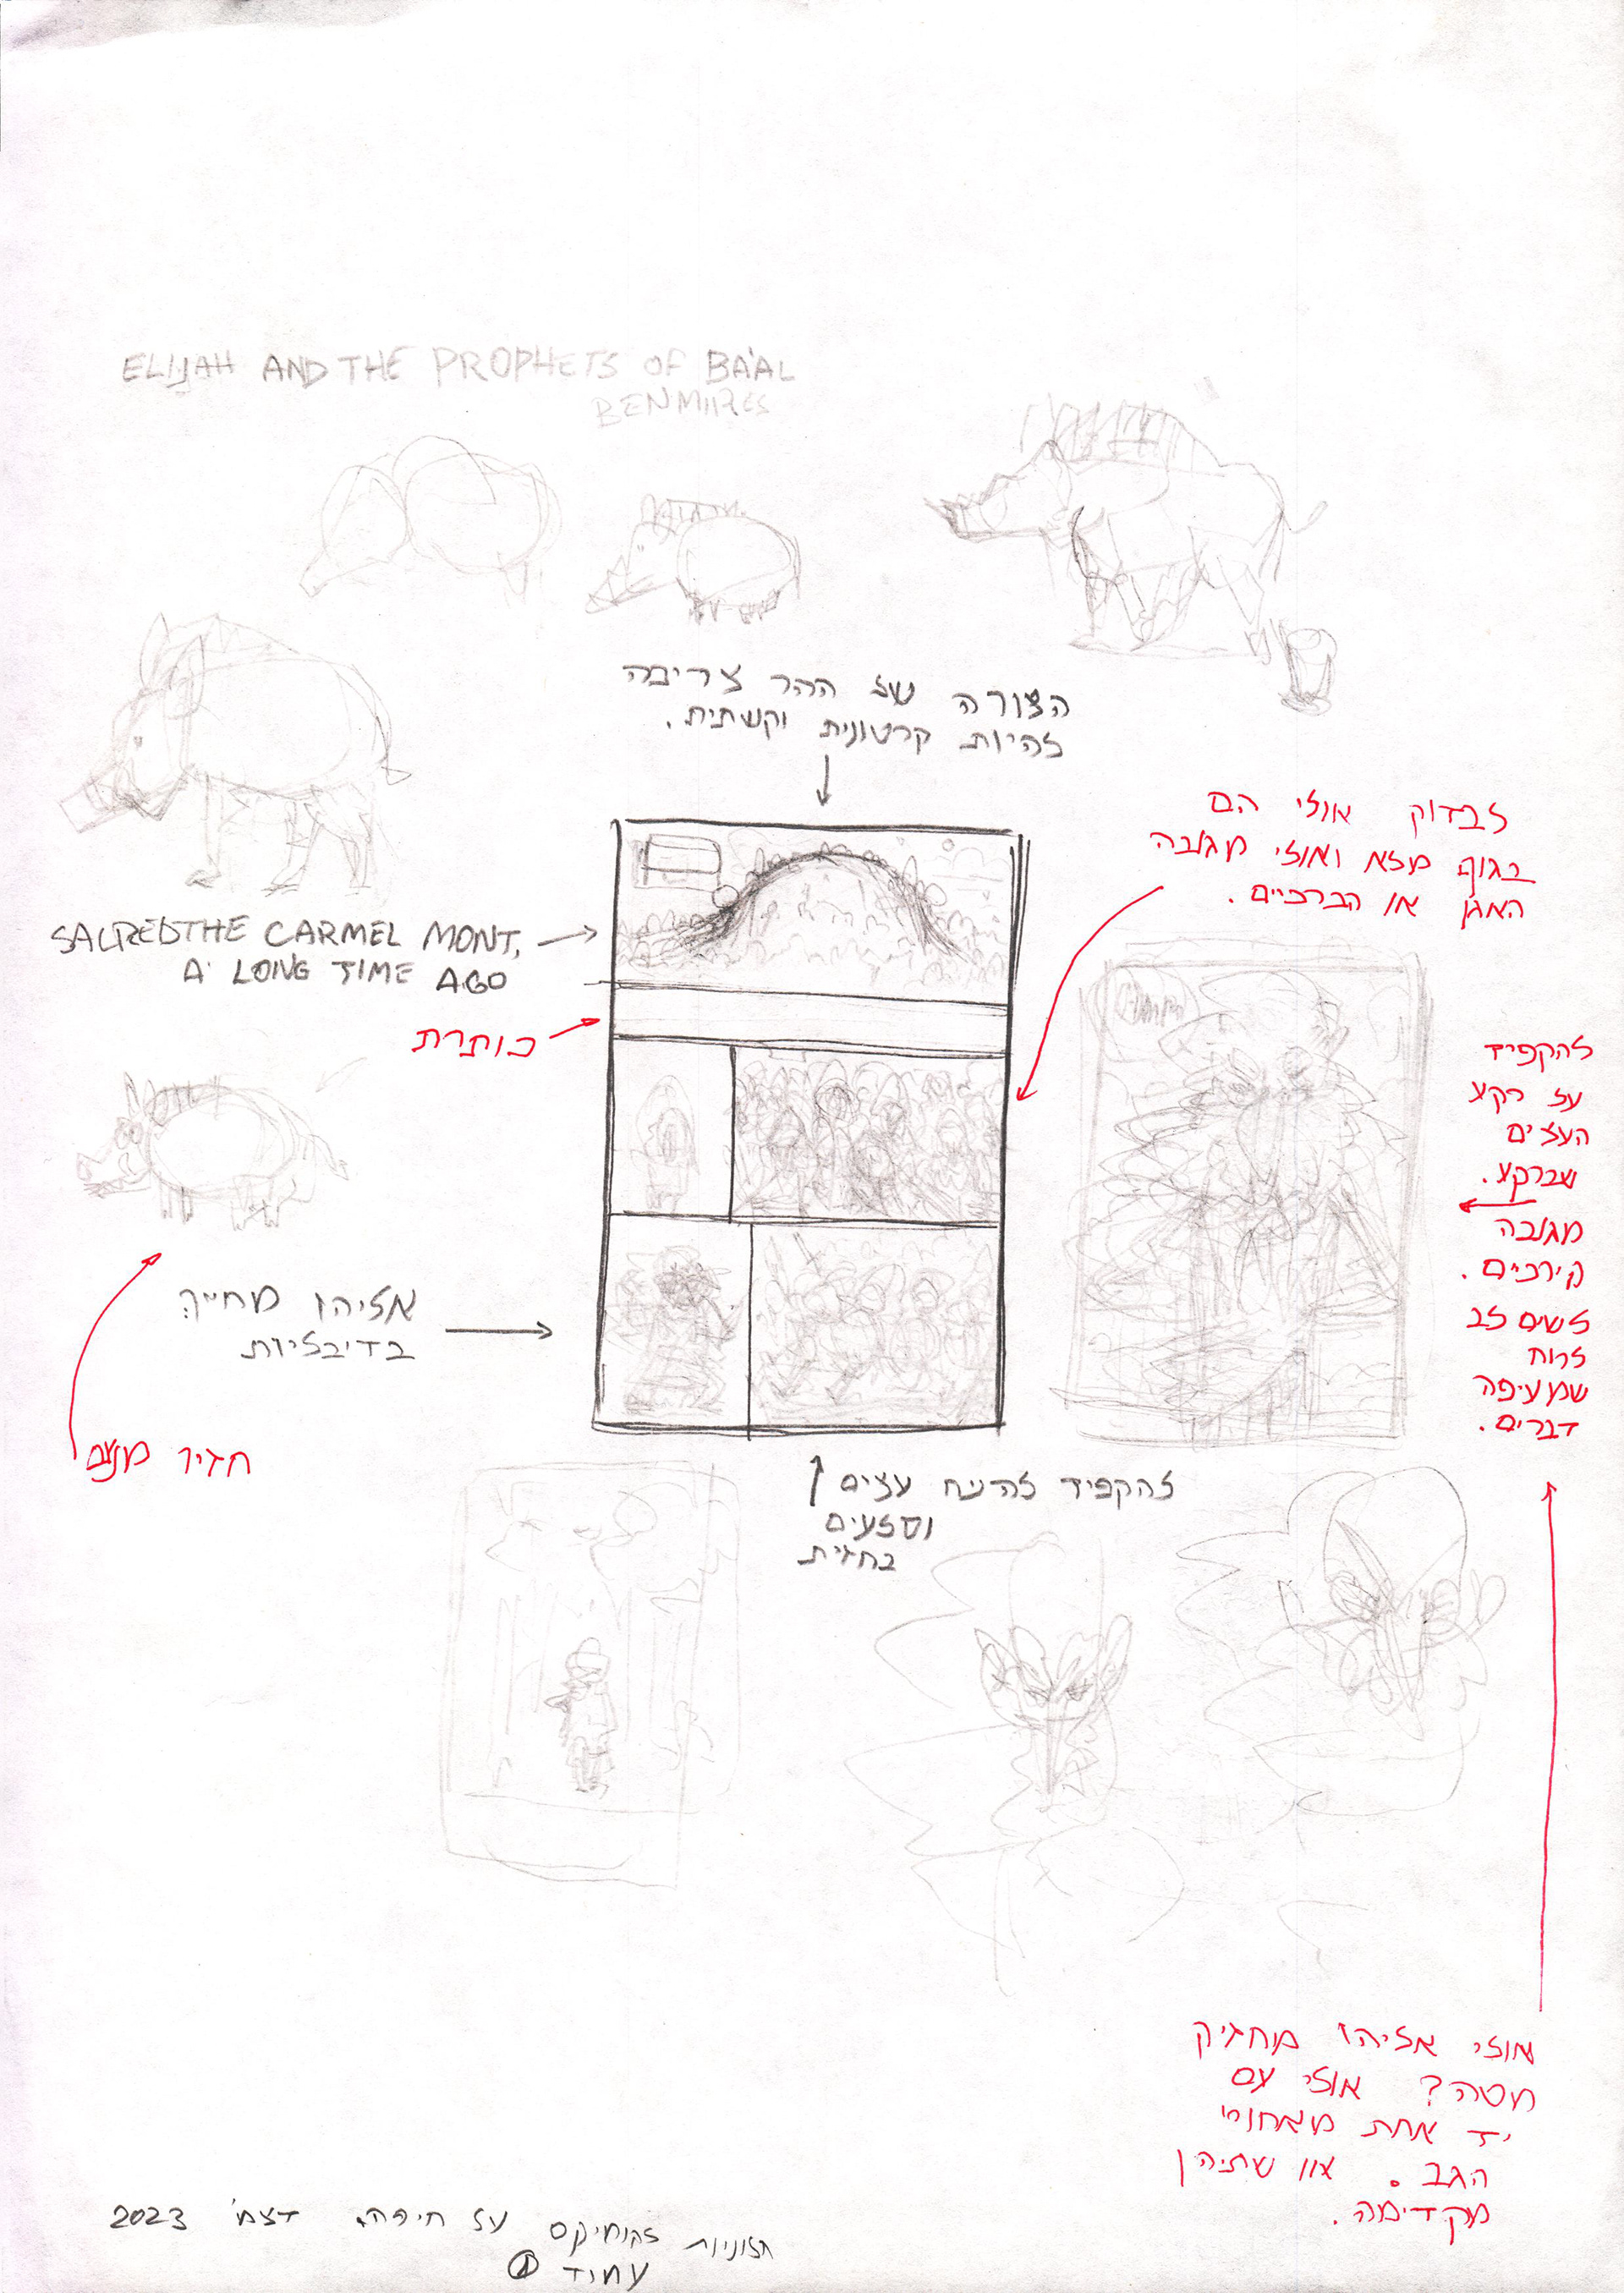 ELIJAH AND THE PROPHETS OF BA'AL
הצורה של ההר צריכה
להיות קרטונית וקשתית.
לבדוק אולי הם
בגוף מלא ואולי מגובה
האגן או הברכיים.
SACRED THE CARMEL MONT,
A LONG TIME AGO
כותרת
להקפיד
על רקע
העצים
שברקע.
מגובה
קירכיים.
לשים לב
לרוח
שמעיפה
דברים.
אליהו מחייך
בדיבליות
חזיר מנומס
להקפיד להניח עצים
וסלעים
בחזית
אולי אליהו מחזיק
מטה? אולי עם
יד אחת מאחורי
הגב. או שתיהן
מקדימה.
חלוניות לקומיקס על חיפה, דצמ' 2023
עמוד 1